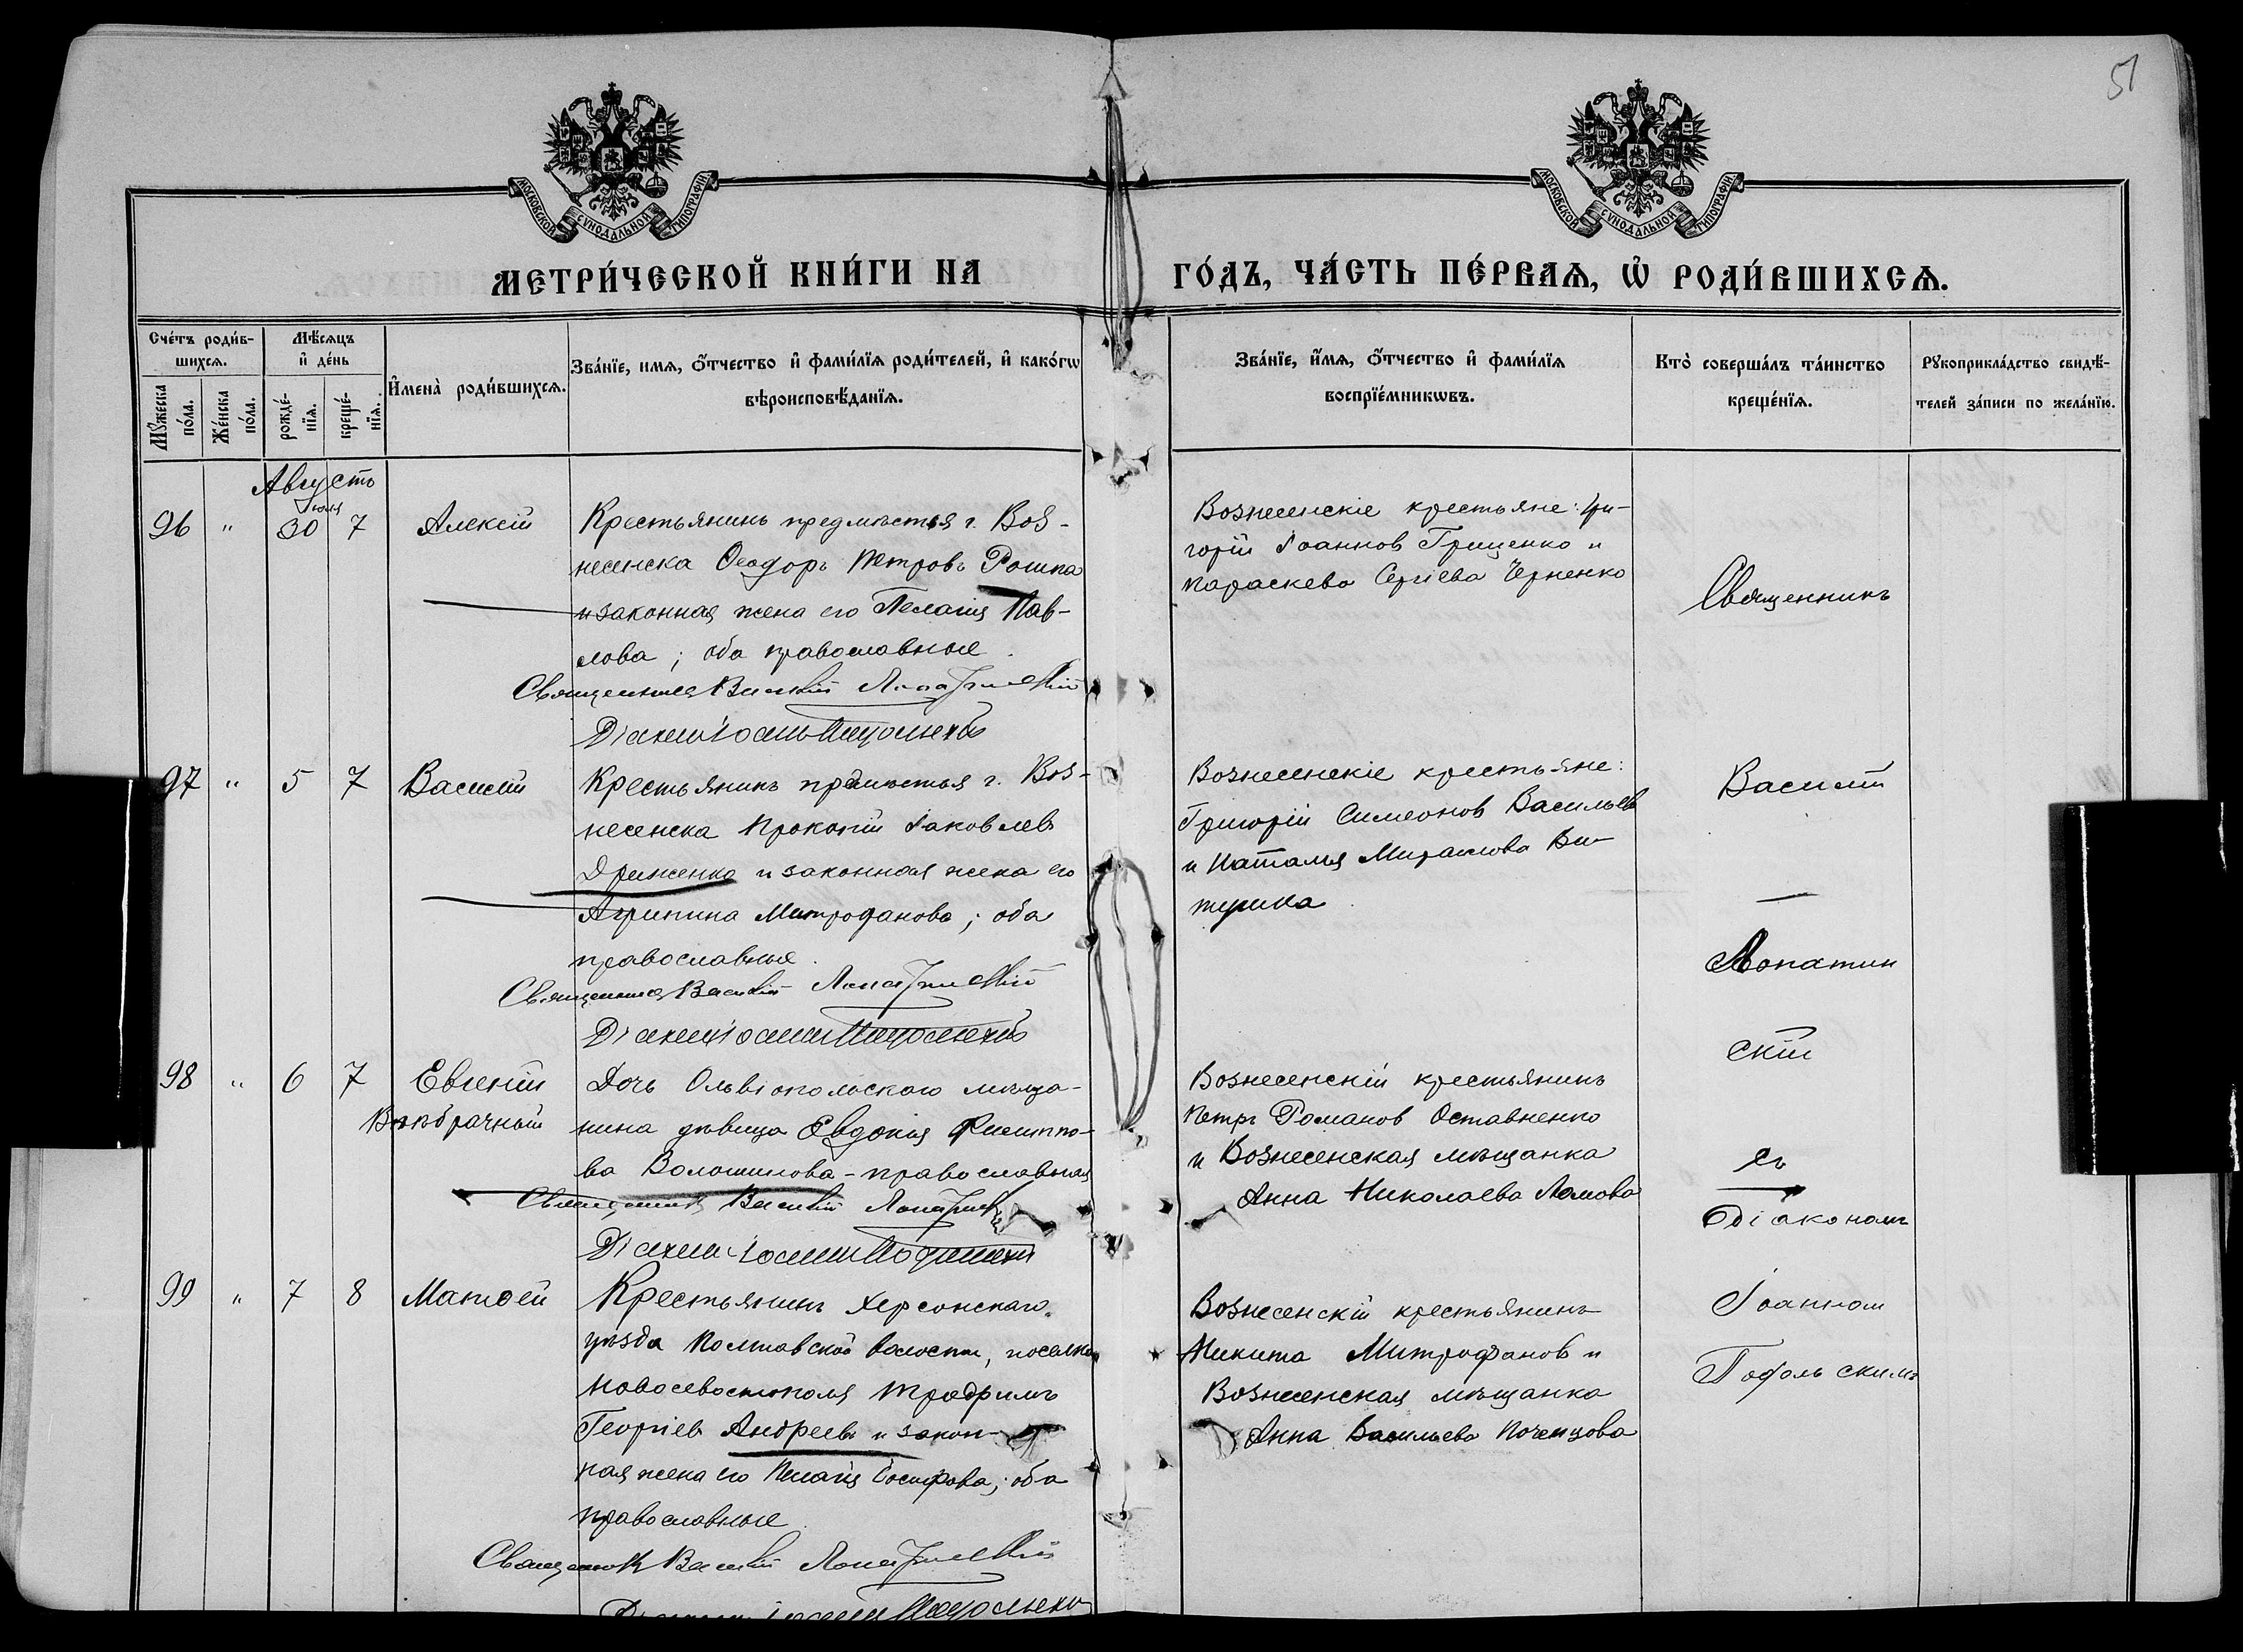 51
МОСКОВСКОЙ СУНОДАЛЬНОЙ ТИПОГРАФІИ
МОСКОВСКОЙ СУНОДАЛЬНОЙ ТИПОГРАФІИ
МЕТРИ́ЧЕСКОЙ КНИ́ГИ НА
ГО́ДЪ, ЧА́СТЬ ПЕ́РВАѦ, Ѡ҆ РОДИ́ВШИХСѦ.
Сче́тъ роди́в-
шихсѧ.
Мꙋ́жеска по́ла.
Же́нска по́ла.
Мѣ́сѧцъ
и҆ де́нь
рожде́-
нїѧ.
креще́-
нїѧ.
И҆мена̀ роди́вшихсѧ.
Зва́нїе, имѧ, ѻ҆́тчество и҆ фами́лїѧ роди́телей, и҆ како́гѡ
вѣроисповѣ́данїѧ.
Зва́нїе, и҆́мѧ, ѻ҆́тчество и҆ фами́лїѧ
воспрїе́мникѡвъ.
Кто̀ соверша́лъ та́инство
креще́нїѧ.
Рꙋкоприкла́дство свидѣ́-
телей за́писи по жела́нїю.
Августъ
Іюля
96 " 30 7 Алексій
Крестьянинъ предмѣстья г. Воз-
несенска Ѳеодоръ Петровъ Рошка
и законная жена его Пелагія Пав-
лова; оба православные.
Священникъ Василій Лопатинскій
Діаконъ Іоаннъ
Вознесенскіе крестьяне: Гри-
горій Іоаннов Гриценко и
Параскева Сергіева Черненко
Священникъ
97 " 5 7 Василій
Крестьянинъ предмѣстья г. Воз-
несенска Прокопій Іаковлевъ
Дриженко и законная жена его
Агрипина Митрофанова; оба
православные.
Священникъ Василій Лопатинскій
Діаконъ Іоаннъ
Вознесенскіе крестьяне:
Григорій Симеонов Васильев
и Наталья Ми
Василій
Лопатин
скій
98 " 6 7 Евгеній
Внѣбрачный
Дочь Ольвіопольскаго мѣща-
нина дѣвица Евдокія Филиппо-
ва Волошинова - православная
Священникъ Василій
Діаконъ Іоаннъ
Вознесенскій крестьянинъ
Петръ Романов Оставненко
и Вознесенская мѣщанка
Анна Николаева Ломова
съ
діакономъ
99 " 7 8 Матѳей
Крестьянинъ Херсонскаго
уѣзда Полтавской волости, поселка
Новосевостополя Трофимъ
Георгіевъ Андреевъ и закон-
ная жена его Пелагія Іосифова; оба
православные
Священникъ Василій Лопатинскій
Діаконъ Іоаннъ
Вознесенскій крестьянинъ
Никита Митрофанов и
Вознесенская мѣщанка
Анна Васильева Поченцова
Іоанном